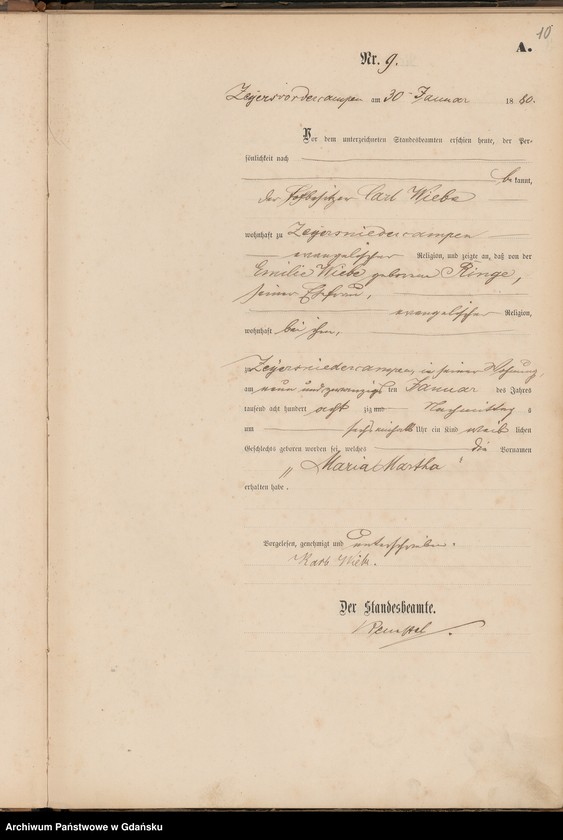 10
A.
Nr. 9.
Zeyersvordercampen am 30 Januar 1880.
Vor dem unterzeichneten Standesbeamten erschien heute, der Per-
sönlichkeit nach
bekannt,
der Hofbesitzer Carl Wiebe
wohnhaft zu Zeyersniedercampen
evangelischer Religion, und zeigte an, daß von der
Emilie Wiebe geborene Ringe,
seiner Ehefrau,
evangelischer Religion,
wohnhaft bei ihm,
zu Zeyersniedercampen, in seiner Wohnung,
am neun und zwanzigsten Januar des Jahres
tausend acht hundert acht zig Nachmittag s
um Uhr ein Kind weib lichen
Geschlechts geboren worden sei, welches die Vornamen
„ Maria Martha
erhalten habe.
Vorgelesen, genehmigt und unterschrieben.
Karl Wiebe.
Der Standesbeamte.
Archiwum Państwowe w Gdańsku